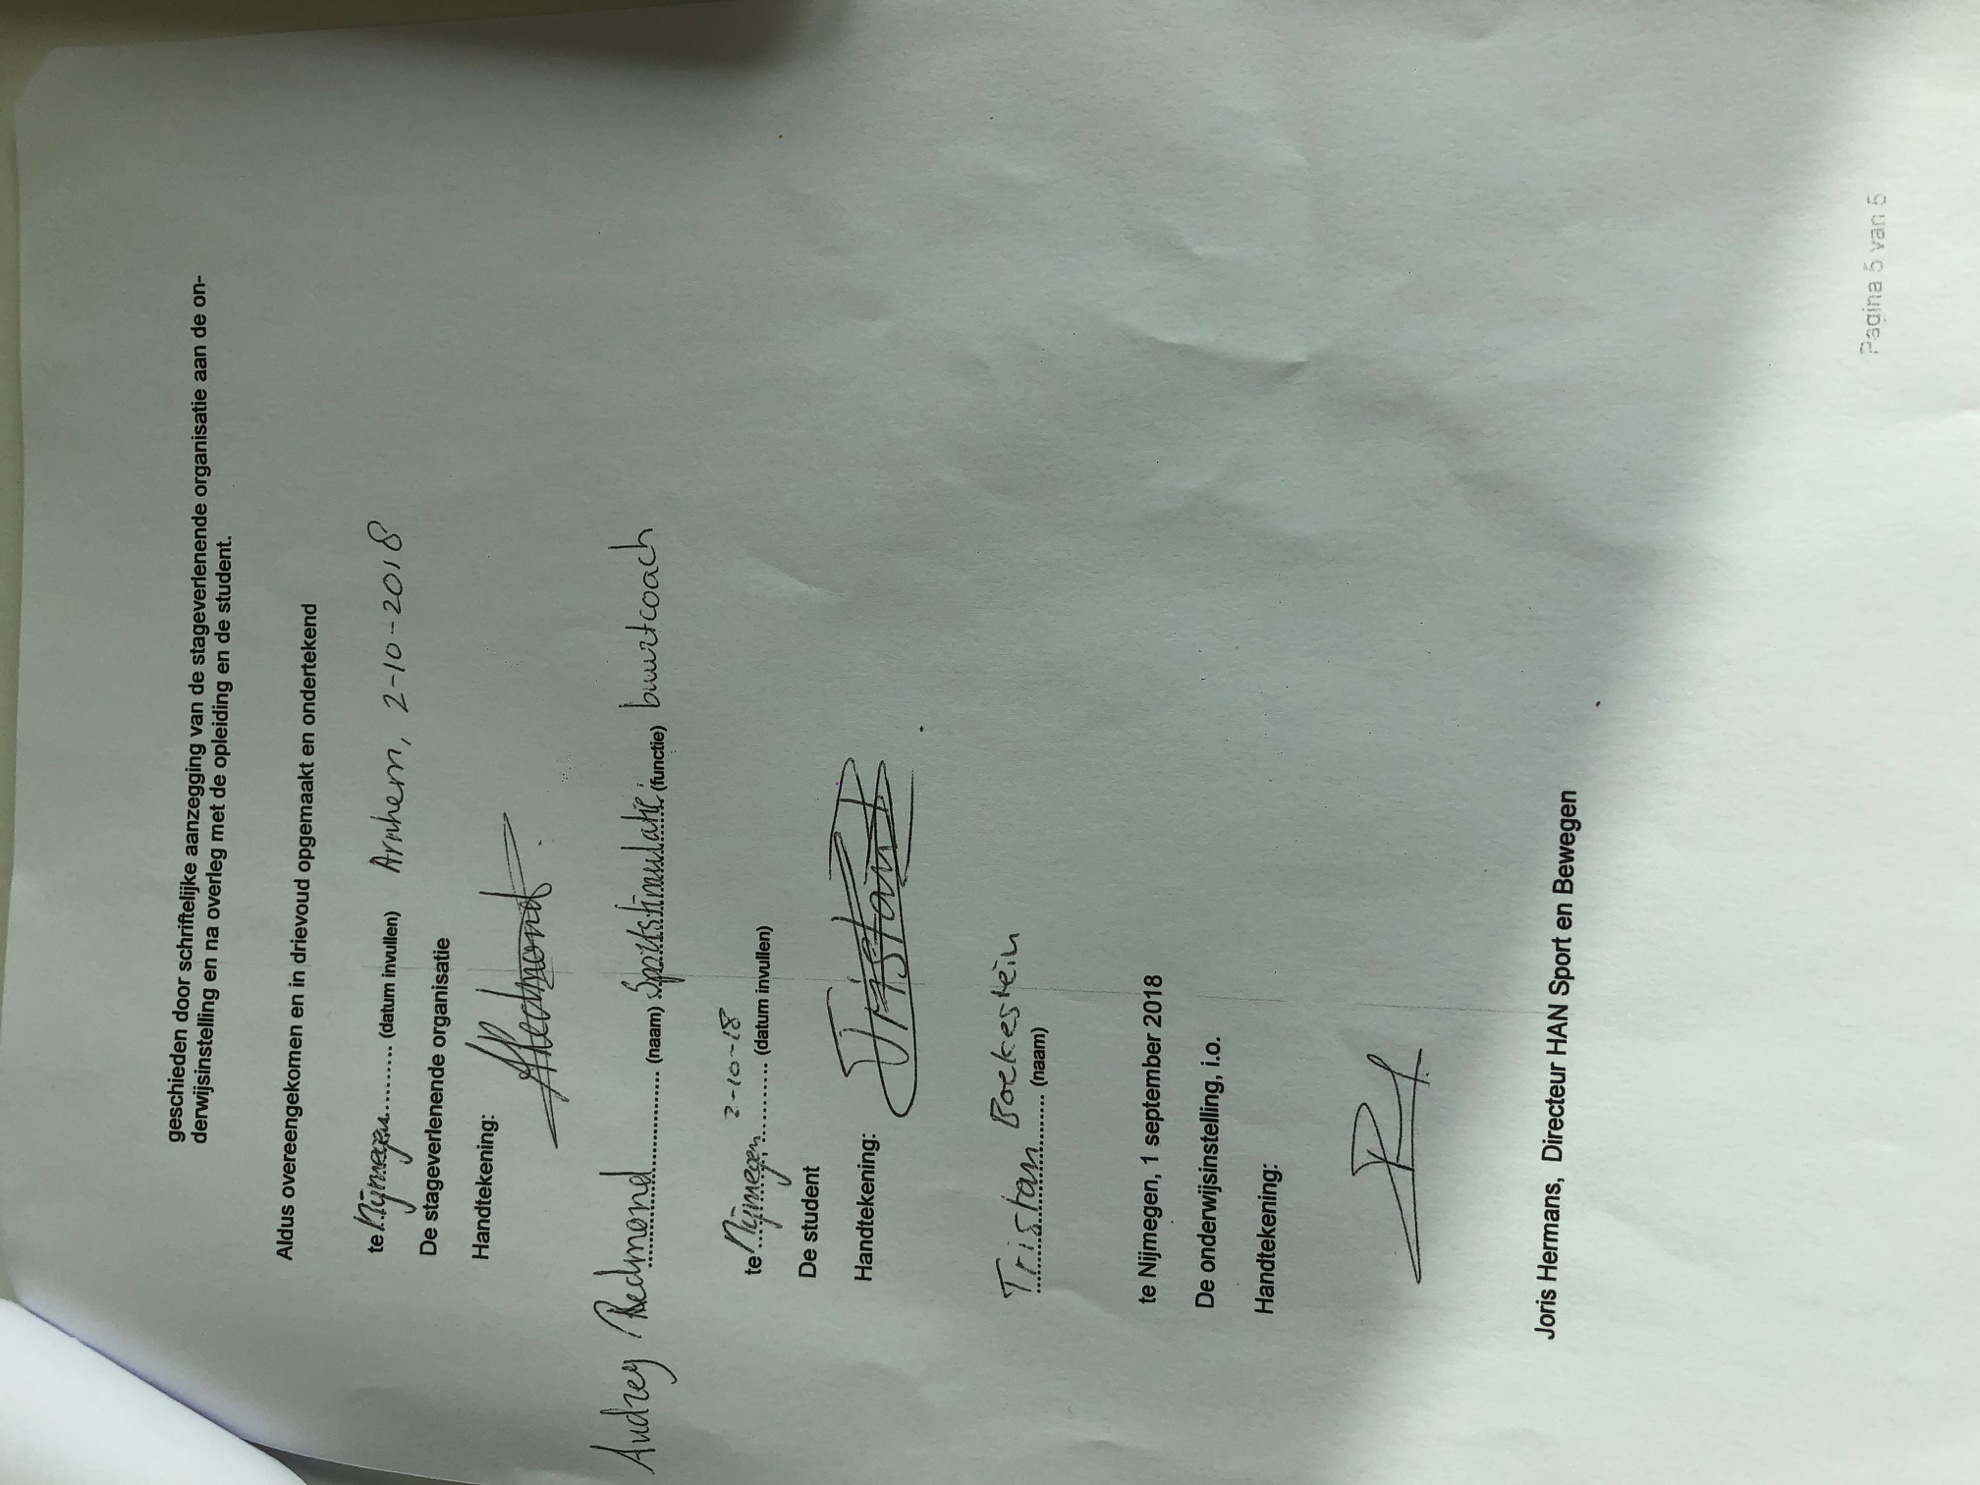 geschieden door schriftelijke aanzegging van de stageverlenende organisatie aan de on-
derwijsinstelling en na overleg met de opleiding en de student.
Aldus overeengekomen en in drievoud opgemaakt en ondertekend
te Nijmegen......... (datum invullen) Arnhem, 2-10-2018
De stageverlenende organisatie
Handtekening:
ARedmond
Audrey Redmond .................. (naam) Sportstimulatie (functie) buurtcoach
te Nijmegen 2-10-18 .......... (datum invullen)
De student
Handtekening:
Tristan
Tristan Boekestein
.................. (naam)
te Nijmegen, 1 september 2018
De onderwijsinstelling, i.o.
Handtekening:
Joris Hermans, Directeur HAN Sport en Bewegen
Pagina 5 van 5